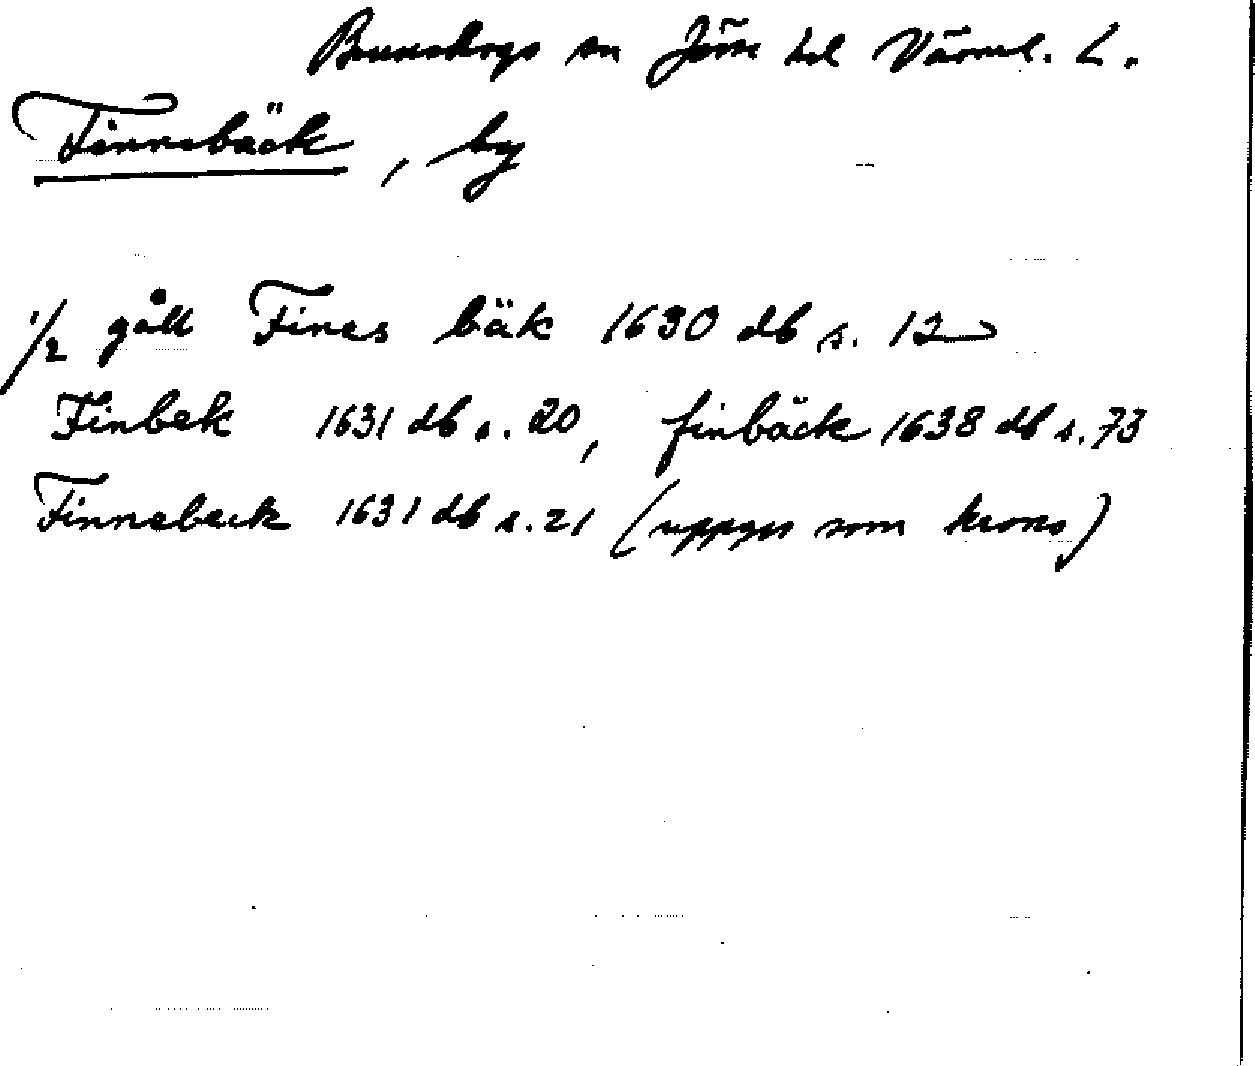 Brunskogs sn Jösse hd Värml. L.
Finnebäck, by
1/2 gått Fines bäk 1630 db s. 12
Finbek 1631 db s. 20, finbäck 1638 db s. 73
Finnebeck 1631 db s. 21 (uppges som krono)